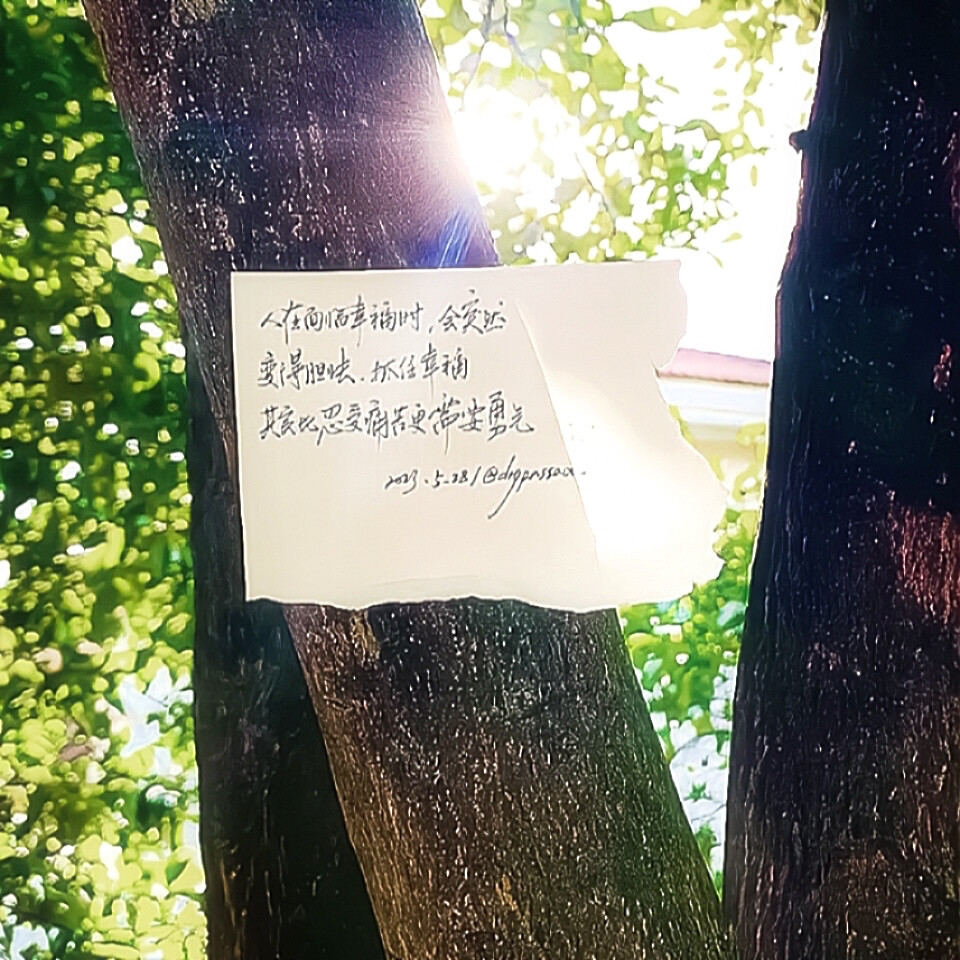 人在面临幸福时,会突然
变得胆怯.抓住幸福
其实比忍受痛苦更需要勇气
2023.5.28/@